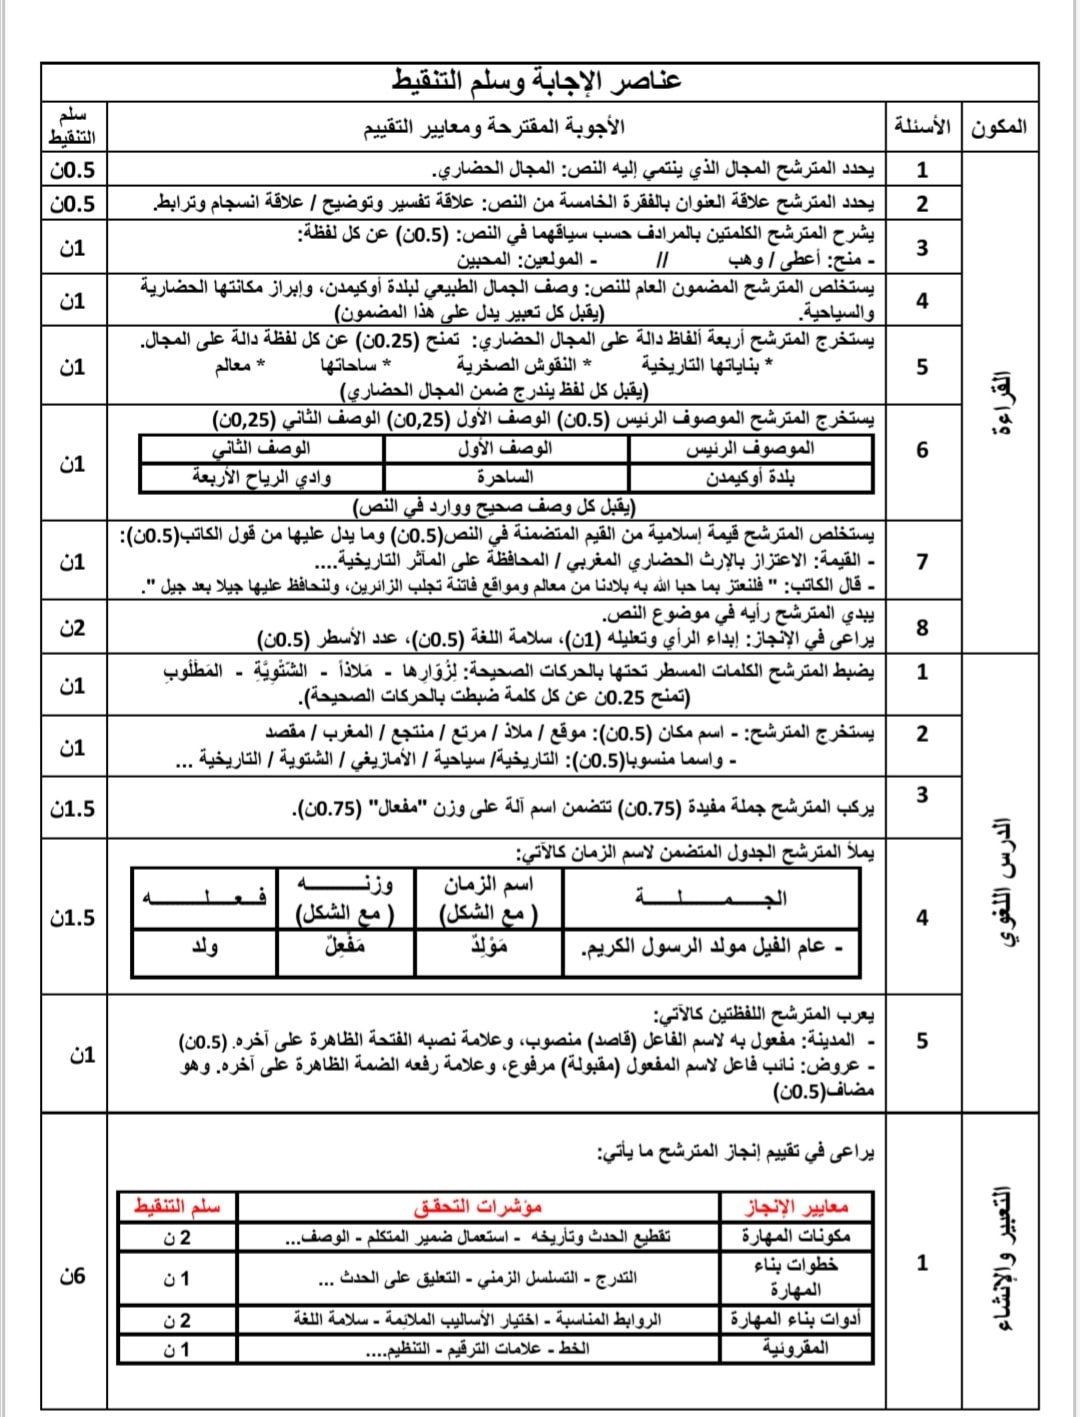 عناصر الإجابة وسلم التنقيط
المكون
الأسئلة
الأجوبة المقترحة ومعايير التقييم
سلم
التنقيط
القراءة
1
يحدد المترشح المجال الذي ينتمي إليه النص: المجال الحضاري.
0.5ن
2
يحدد المترشح علاقة العنوان بالفقرة الخامسة من النص: علاقة تفسير وتوضيح / علاقة انسجام وترابط.
0.5ن
3
يشرح المترشح الكلمتين بالمرادف حسب سياقهما في النص: (0.5ن) عن كل لفظة:
- منح: أعطى / وهب // - المولعين: المحبين
1ن
4
يستخلص المترشح المضمون العام للنص: وصف الجمال الطبيعي لبلدة أوكيمدن، وإبراز مكانتها الحضارية
والسياحية. (يقبل كل تعبير يدل على هذا المضمون)
1ن
5
يستخرج المترشح أربعة ألفاظ دالة على المجال الحضاري: تمنح (0.25ن) عن كل لفظة دالة على المجال.
* بناياتها التاريخية * النقوش الصخرية * ساحاتها * معالم
(يقبل كل لفظ يندرج ضمن المجال الحضاري)
1ن
6
يستخرج المترشح الموصوف الرئيس (0.5ن) الوصف الأول (0,25ن) الوصف الثاني (0,25ن)
الموصوف الرئيس
الوصف الأول
الوصف الثاني
بلدة أوكيمدن
الساحرة
وادي الرياح الأربعة
(يقبل كل وصف صحيح ووارد في النص)
1ن
7
يستخلص المترشح قيمة إسلامية من القيم المتضمنة في النص(0.5ن) وما يدل عليها من قول الكاتب(0.5ن):
- القيمة: الاعتزاز بالإرث الحضاري المغربي / المحافظة على المآثر التاريخية....
- قال الكاتب: " فلنعتز بما حبا الله به بلادنا من معالم ومواقع فاتنة تجلب الزائرين، ولنحافظ عليها جيلا بعد جيل ".
1ن
8
يبدي المترشح رأيه في موضوع النص.
يراعى في الإنجاز: إبداء الرأي وتعليله (1ن)، سلامة اللغة (0.5ن)، عدد الأسطر (0.5ن)
2ن
الدرس اللغوي
1
يضبط المترشح الكلمات المسطر تحتها بالحركات الصحيحة: لِزُوَّارِها - مَلاذاً - الشَّتْوِيَّةِ - المَطْلُوبِ
(تمنح 0.25ن عن كل كلمة ضبطت بالحركات الصحيحة).
1ن
2
يستخرج المترشح: - اسم مكان (0.5ن): موقع / ملاذ / مرتع / منتجع / المغرب / مقصد
- واسما منسوبا(0.5ن): التاريخية/ سياحية / الأمازيغي / الشتوية / التاريخية ...
1ن
3
يركب المترشح جملة مفيدة (0.75ن) تتضمن اسم آلة على وزن "مفعال" (0.75ن).
1.5ن
4
يملأ المترشح الجدول المتضمن لاسم الزمان كالآتي:
الجـــمـــلـــة
اسم الزمان
( مع الشكل)
وزنــــــه
( مع الشكل)
فــعــلــــه
- عام الفيل مولد الرسول الكريم.
مَوْلِدُ
مَفْعِلٌ
ولد
1.5ن
5
يعرب المترشح اللفظتين كالآتي:
- المدينة: مفعول به لاسم الفاعل (قاصد) منصوب، وعلامة نصبه الفتحة الظاهرة على آخره. (0.5ن)
- عروض: نائب فاعل لاسم المفعول (مقبولة) مرفوع، وعلامة رفعه الضمة الظاهرة على آخره. وهو
مضاف(0.5ن)
1ن
التعبير والإنشاء
1
يراعى في تقييم إنجاز المترشح ما يأتي:
معايير الإنجاز
مؤشرات التحقق
سلم التنقيط
مكونات المهارة
تقطيع الحدث وتأريخه - استعمال ضمير المتكلم - الوصف...
2 ن
خطوات بناء
المهارة
التدرج - التسلسل الزمني - التعليق على الحدث ...
1 ن
أدوات بناء المهارة
الروابط المناسبة - اختيار الأساليب الملائمة - سلامة اللغة
2 ن
المقروئية
الخط - علامات الترقيم - التنظيم....
1 ن
6ن